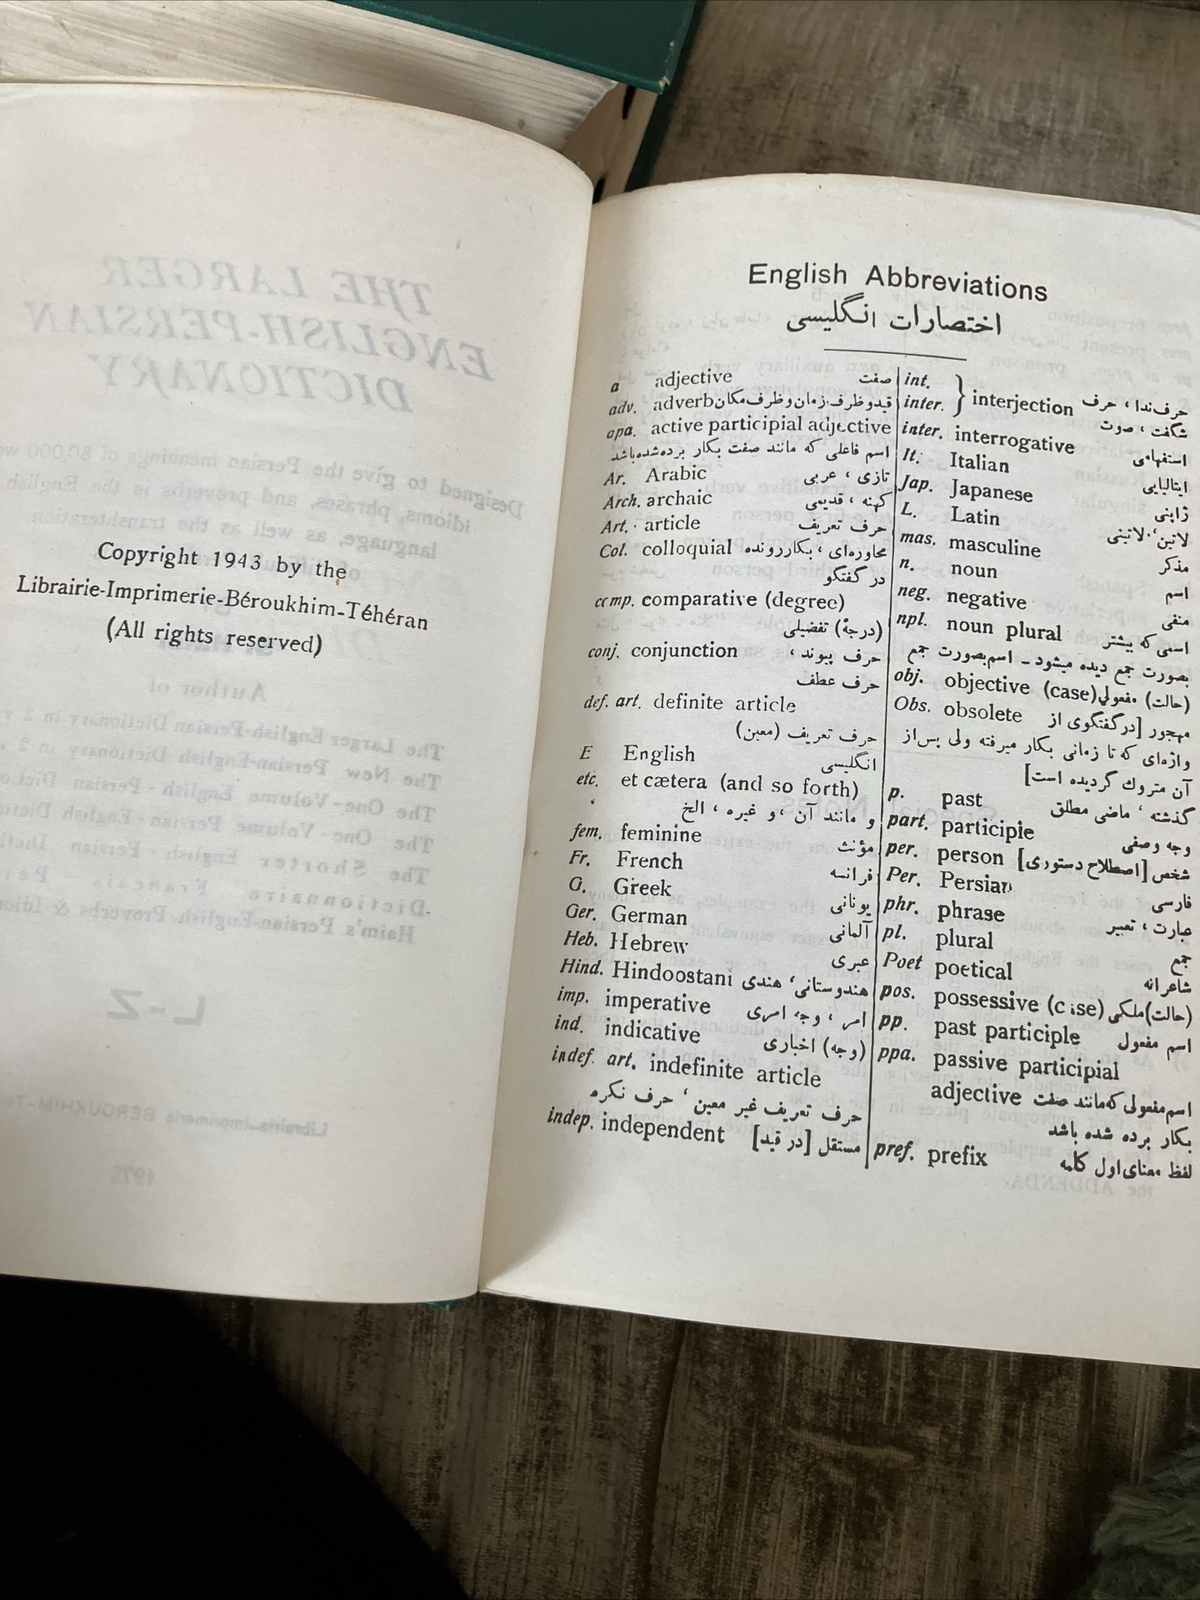 Copyright 1943 by the
Librairie-Imprimerie-Béroukhim-Téhéran
(All rights reserved)
English Abbreviations
اختصارات انگلیسی
a adjective صفت
adv. adverb قیدوظرف‌زمان‌وظرف‌مکان
apa. active participial adjective
اسم فاعلی که مانند صفت بکار برده‌شده‌باشد
Ar. Arabic تازی ، عربی
Arch. archaic کهنه ، قدیمی
Art. article حرف تعریف
Col. colloquial محاوره‌ای ، بکاررونده
در گفتگو
comp. comparative (degree)
(درجهٔ) تفضیلی
conj. conjunction حرف پیوند ،
حرف عطف
def. art. definite article
حرف تعریف (معین)
E English انگلیسی
etc. et cætera (and so forth)
و مانند آن ،و غیره ، الخ
fem. feminine مؤنث
Fr. French فرانسه
G. Greek یونانی
Ger. German آلمانی
Heb. Hebrew عبری
Hind. Hindoostani هندوستانی، هندی
imp. imperative امر ، وجه امری
ind. indicative (وجه) اخباری
indef. art. indefinite article
حرف تعریف غیر معین ، حرف نکره
indep. independent مستقل [در قید]
int.
inter. } interjection حرف‌ندا ، حرف
شگفت ، صوت
inter. interrogative استفهامی
It. Italian ایتالیایی
Jap. Japanese ژاپنی
L. Latin لاتین، لاتینی
mas. masculine مذکر
n. noun اسم
neg. negative منفی
npl. noun plural اسمی که بیشتر
بصورت جمع دیده میشود ـ اسم‌بصورت جمع
obj. objective (case) (حالت) مفعولی
Obs. obsolete مهجور [درگفتگوی از
واژه‌ای که تا زمانی بکار میرفته ولی پس‌از
آن متروك گردیده است]
p. past گذشته ، ماضی مطلق
part. participle وجه وصفی
per. person شخص [اصطلاح دستوری]
Per. Persian فارسی
phr. phrase عبارت ، تعبیر
pl. plural جمع
Poet poetical شاعرانه
pos. possessive (case) (حالت)ملکی
pp. past participle اسم مفعول
ppa. passive participial
adjective اسم‌مفعولی که‌مانند صفت
بکار برده شده باشد
pref. prefix لفظ معنای‌اول کلمه